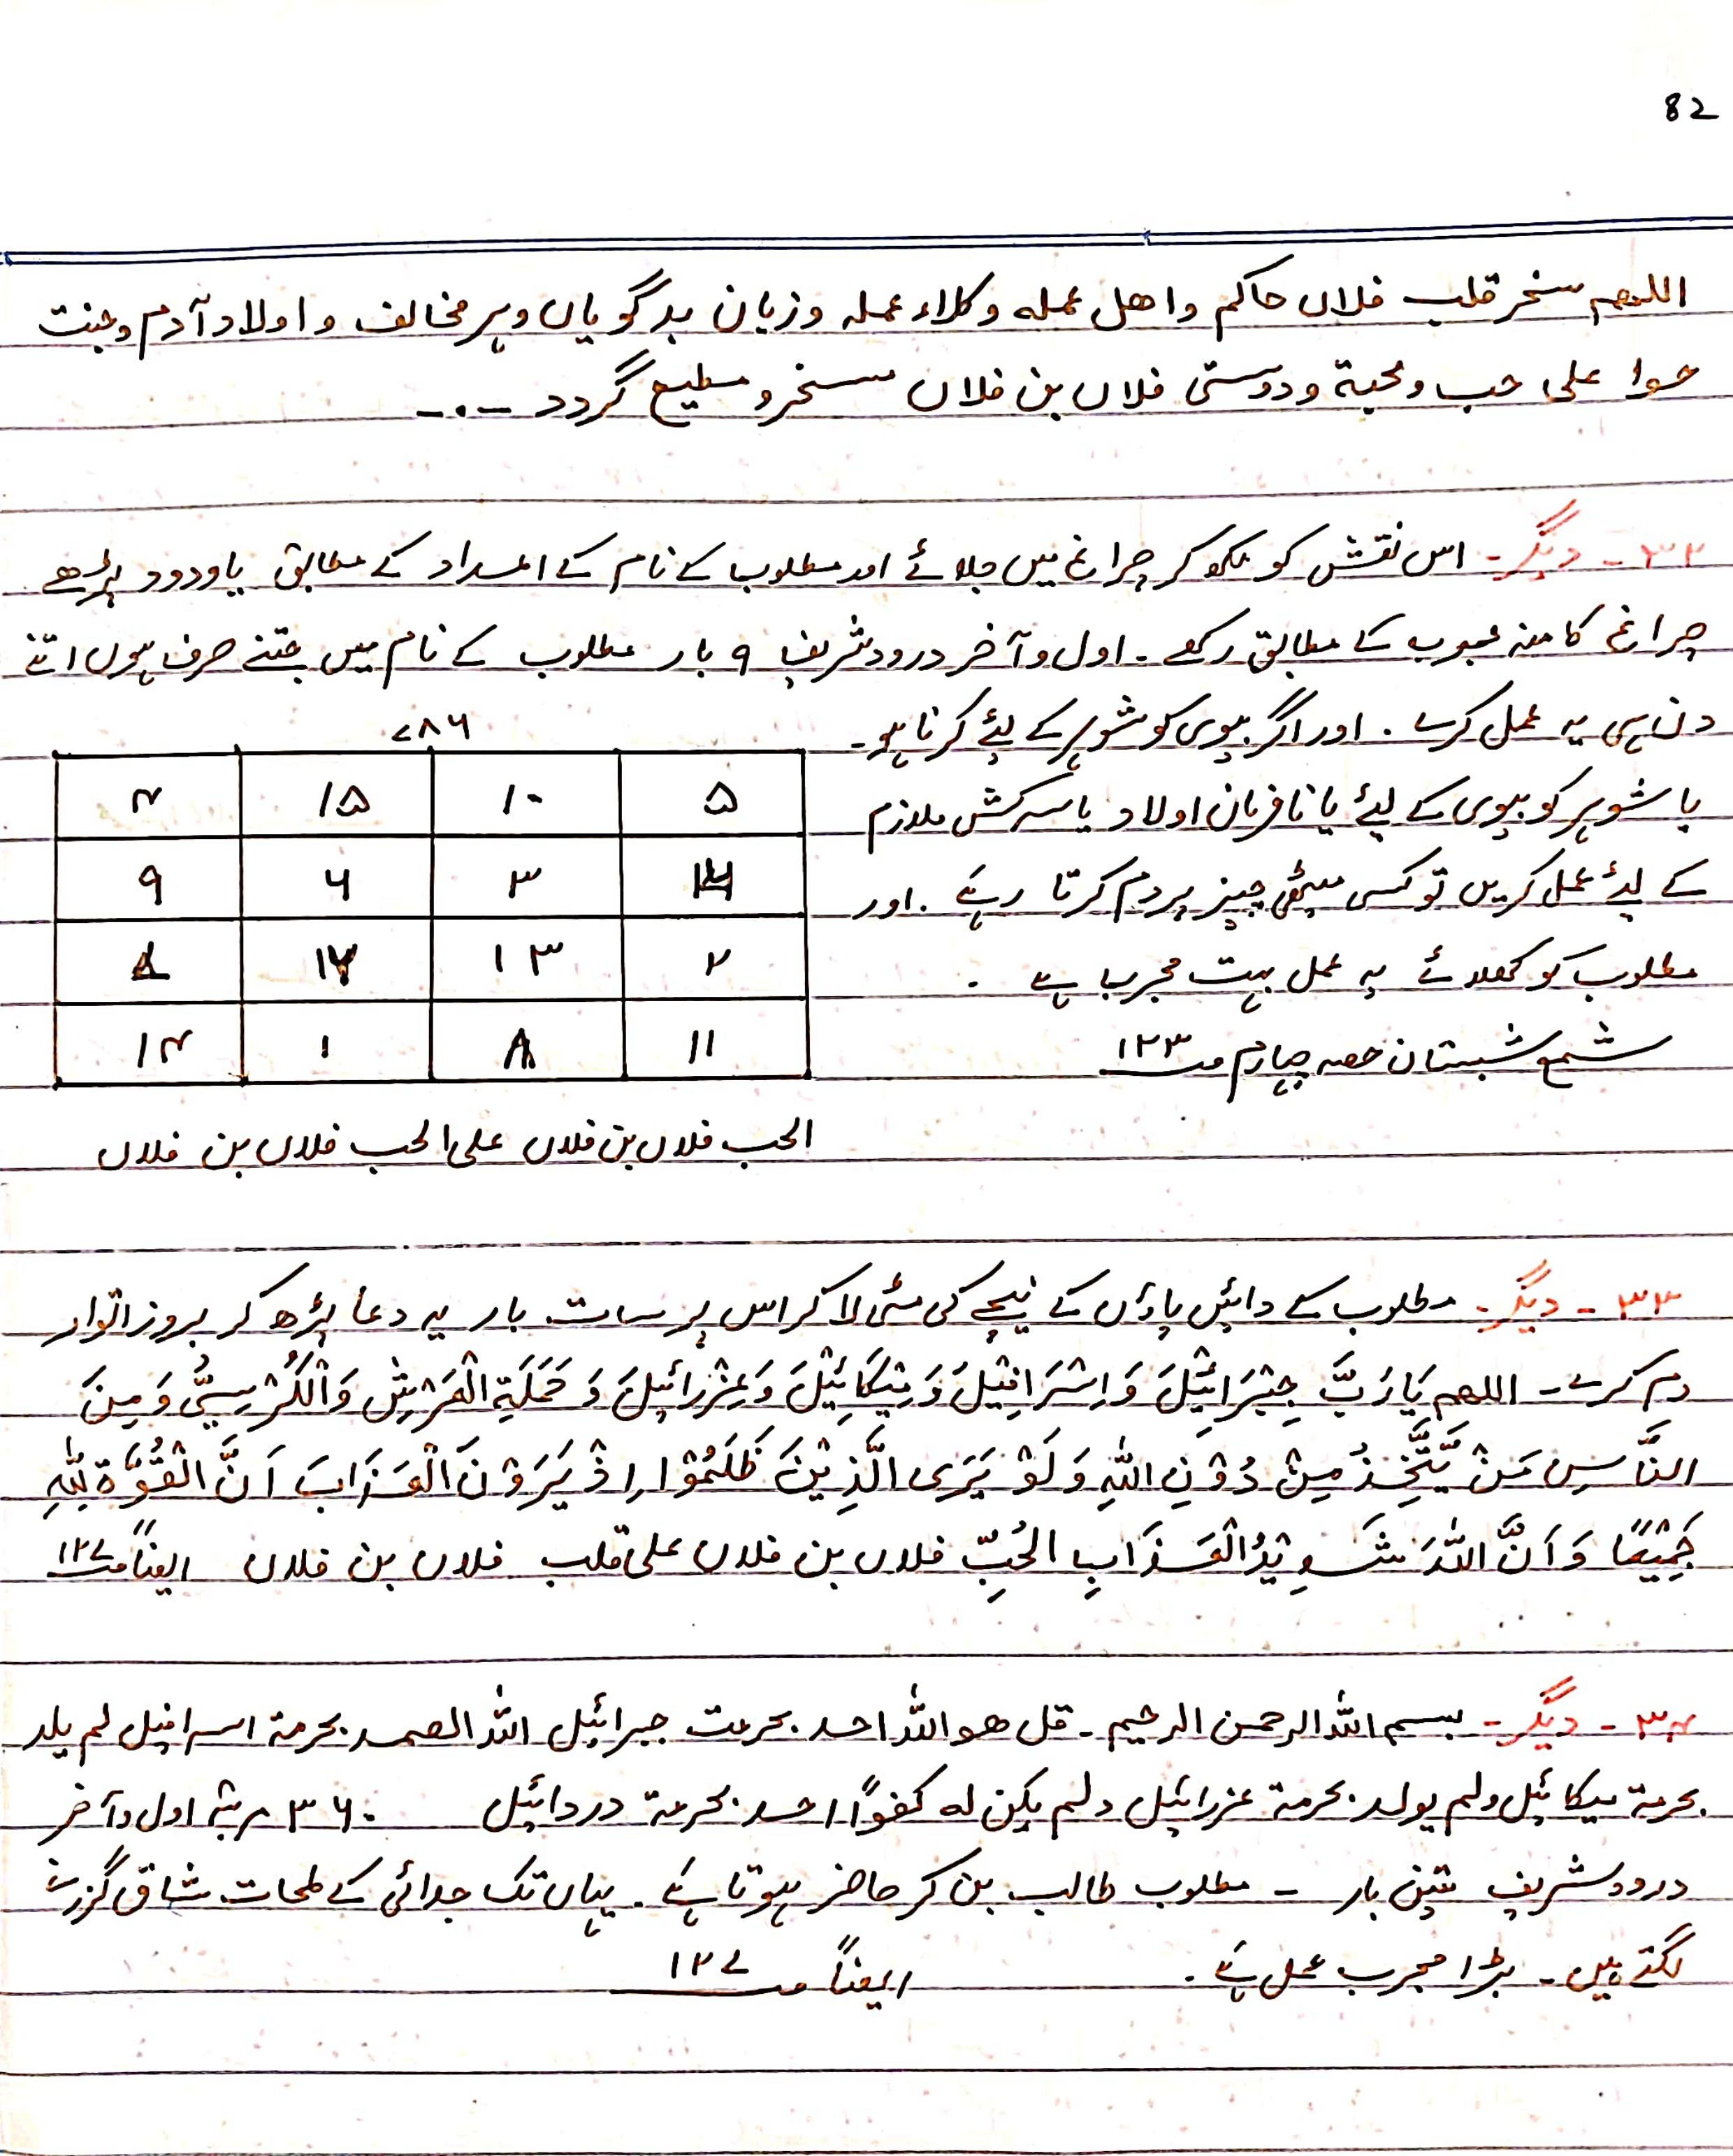 82
اللھم سخر قلب فلاں حاکم و اھل عملہ وکلاء عملہ و زبان بدگویاں و ہر مخالف و اولاد آدم و بنت
حوا علی حب و محبۃ و دوستی فلاں بن فلاں مسخر و مطیع گردد ۔
۳۲۔ دیگر۔ اس نقش کو لکھ کر چراغ میں جلائے اور مطلوب کے نام کے اعداد کے مطابق یا ودود پڑھے
چراغ کا منہ محبوب کے مطابق رکھے ۔ اول و آخر درود شریف ۹ بار مطلوب کے نام میں جتنے حرف ہوں اتنے
دن ہی یہ عمل کرے ۔ اور اگر بیوی کو شوہر کے لئے کرنا ہو۔
یا شوہر کو بیوی کے لئے یا نافرمان اولاد یا سرکش ملازم
کے لئے عمل کریں تو کسی میٹھی چیز پر دم کرتا رہے ۔ اور
مطلوب کو کھلائے یہ عمل بہت مجرب ہے ۔
شمع شبستان حصہ چہارم صـ ۱۲۳
۷۸۶
۵ ۱۰ ۱۵ ۴
۳ ۶ ۹
۲ ۱۳
۱۱ ۸ ۱ ۱۴
الحب فلاں بن فلاں علی الحب فلاں بن فلاں
۳۳۔ دیگر۔ مطلوب کے دائیں پاؤں کے نیچے کی مٹی لا کر اس پر سات بار یہ دعا پڑھ کر بروز اتوار
دم کرے۔ اللھم یَا رَبَّ جِبْرَائِیْلَ وَ اِسْرَافِیْلَ وَ مِیْکَائِیْلَ وَ عِزْرَائِیْلَ وَ حَمَلَۃِ الْعَرْشِ وَالْکُرْسِیِّ وَ مِنَ
النَّاسِ مَنْ یَّتَّخِذُ مِنْ دُوْنِ اللّٰہِ وَ لَوْ یَرَی الَّذِیْنَ ظَلَمُوْا اِذْ یَرَوْنَ الْعَذَابَ اَنَّ الْقُوَّۃَ لِلّٰہِ
جَمِیْعًا وَ اَنَّ اللّٰہَ شَدِیْدُ الْعَذَابِ الحُبِّ فلاں بن فلاں علی قلب فلاں بن فلاں ایضاً صـ ۱۲۷
۳۴۔ دیگر۔ بسم اللہ الرحمن الرحیم۔ قل ھو اللہ احد بحرمت جبرائیل اللہ الصمد بحرمۃ اسرافیل لم یلد
بحرمۃ میکائیل ولم یولد بحرمۃ عزرائیل ولم یکن لہ کفواً احد بحرمۃ دردائیل ۳۶۰ مرتبہ اول و آخر
درود شریف تین بار ۔ مطلوب طالب بن کر حاضر ہوتا ہے ۔ یہاں تک جدائی کے لمحات شاق گزرنے
لگتے ہیں ۔ بڑا مجرب عمل ہے ۔ ایضاً صـ ۱۲۷